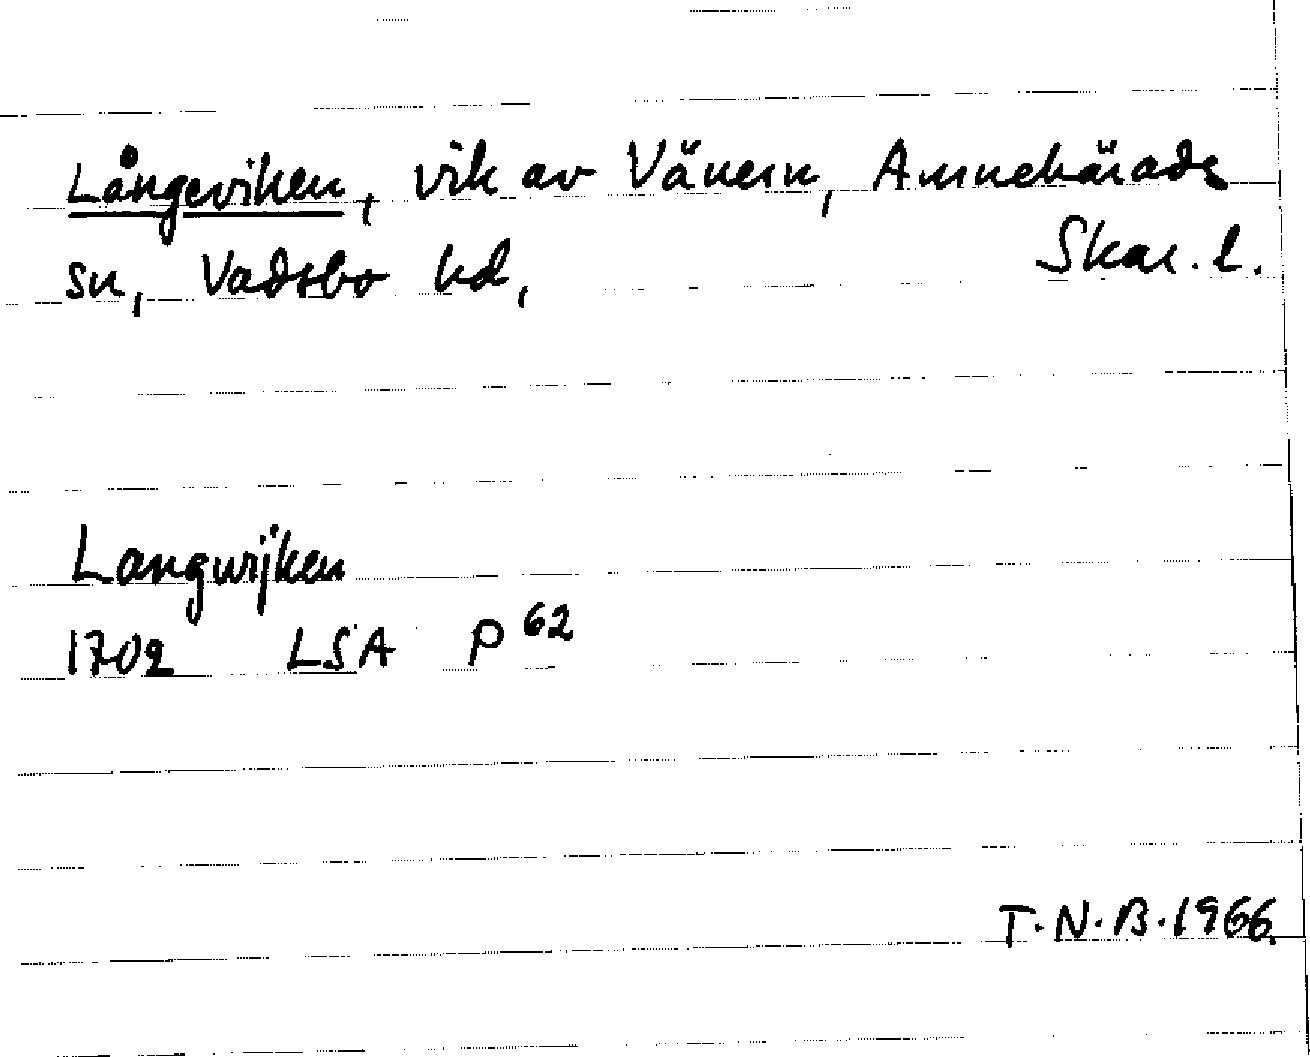 Långeviken, vik av Vänern, Amnehärads
sn, Vadsbo hd, Skar. l.
Langwijken
1702 LSA P 62
T.N.B. 1966.